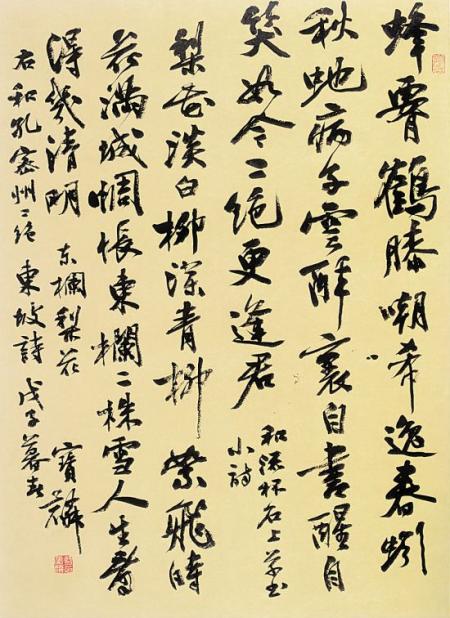 蜂腰鶴膝嘲希逸春蚓
秋蛇病子雲醉裏自書醒自
笑如今二絕更逢君
和流杯石上草書
小詩
梨花淡白柳深青柳絮飛時
花滿城惆悵東欄二株雪人生看
得幾清明 东欄梨花
右和孔密州二絕 東坡詩 戊子暮春 寶